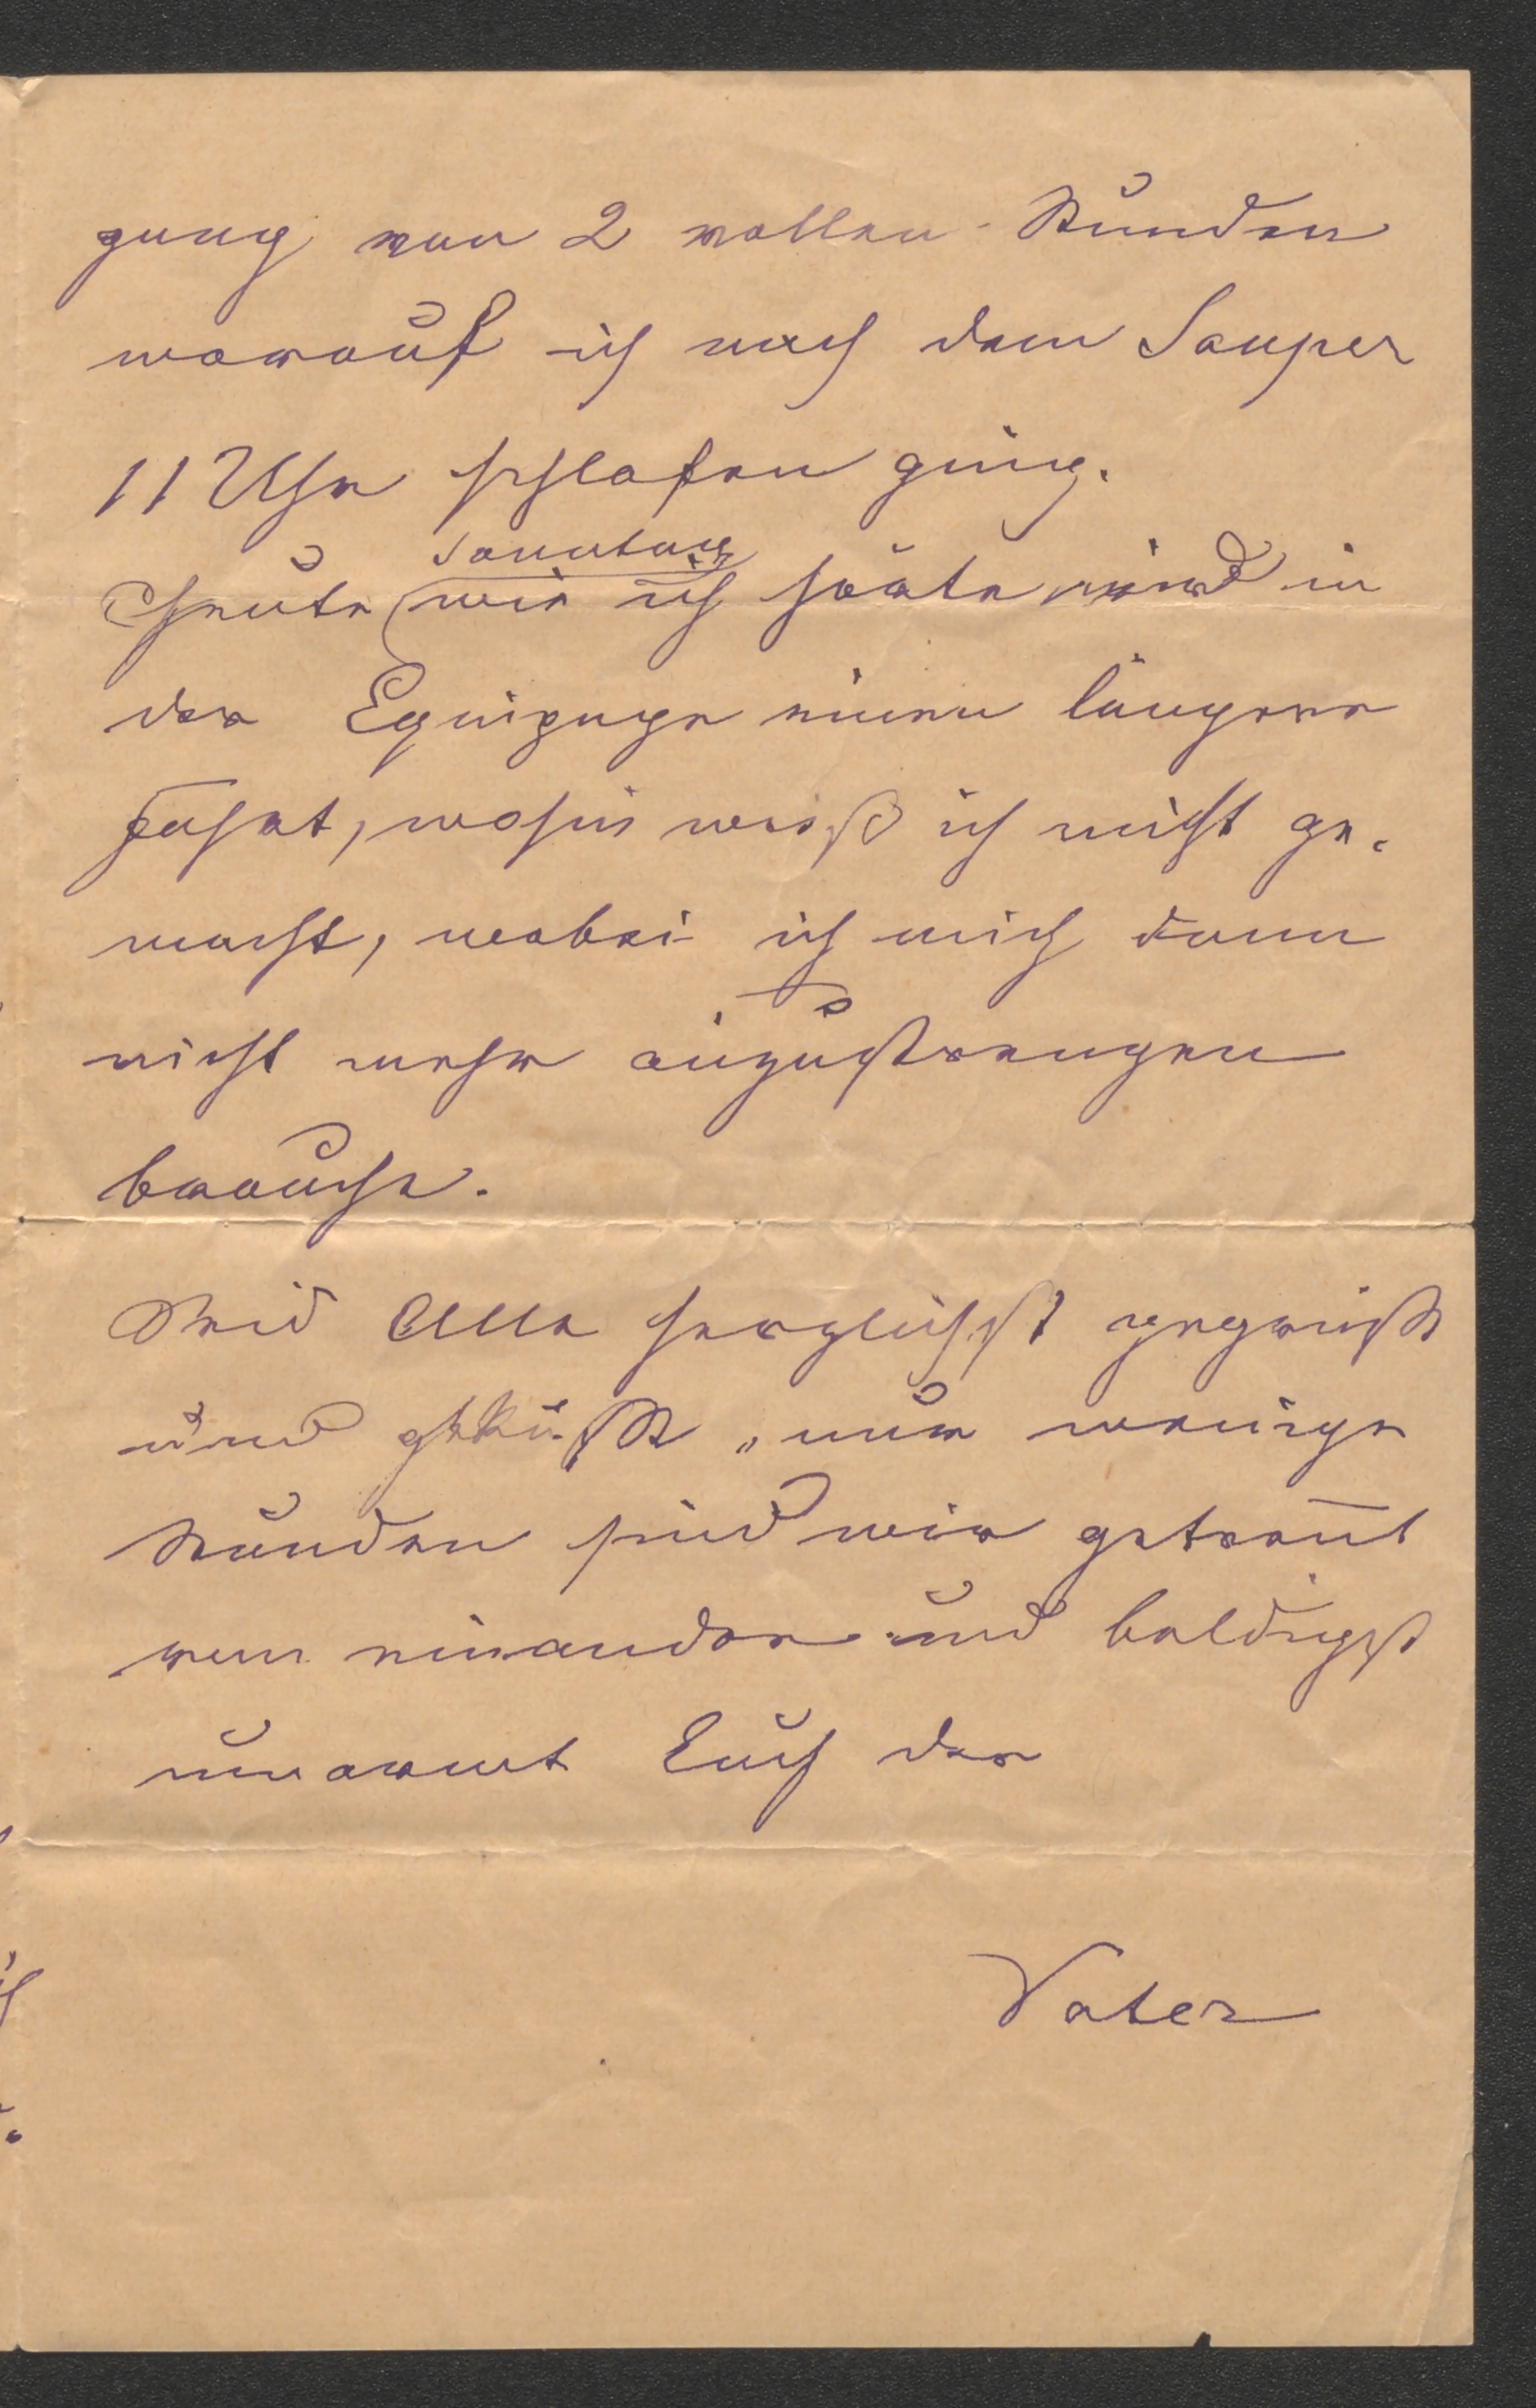 gung von 2 vollen Stunden
worauf ich nach dem Souper
11 Uhr schlafen ging.
Sonntag
Heute wie ich hörte wird in
der Equipage einen längere
Fahrt, wohin weiß ich nicht ge-
macht, wobei ich mich dann
nicht mehr anzustrengen
brauche.
Seid Alle herzlichst gegrüßt
und geküßt, nur wenige
Stunden sind wir getrennt
von einander und baldigst
umarmt Euch der
Vater